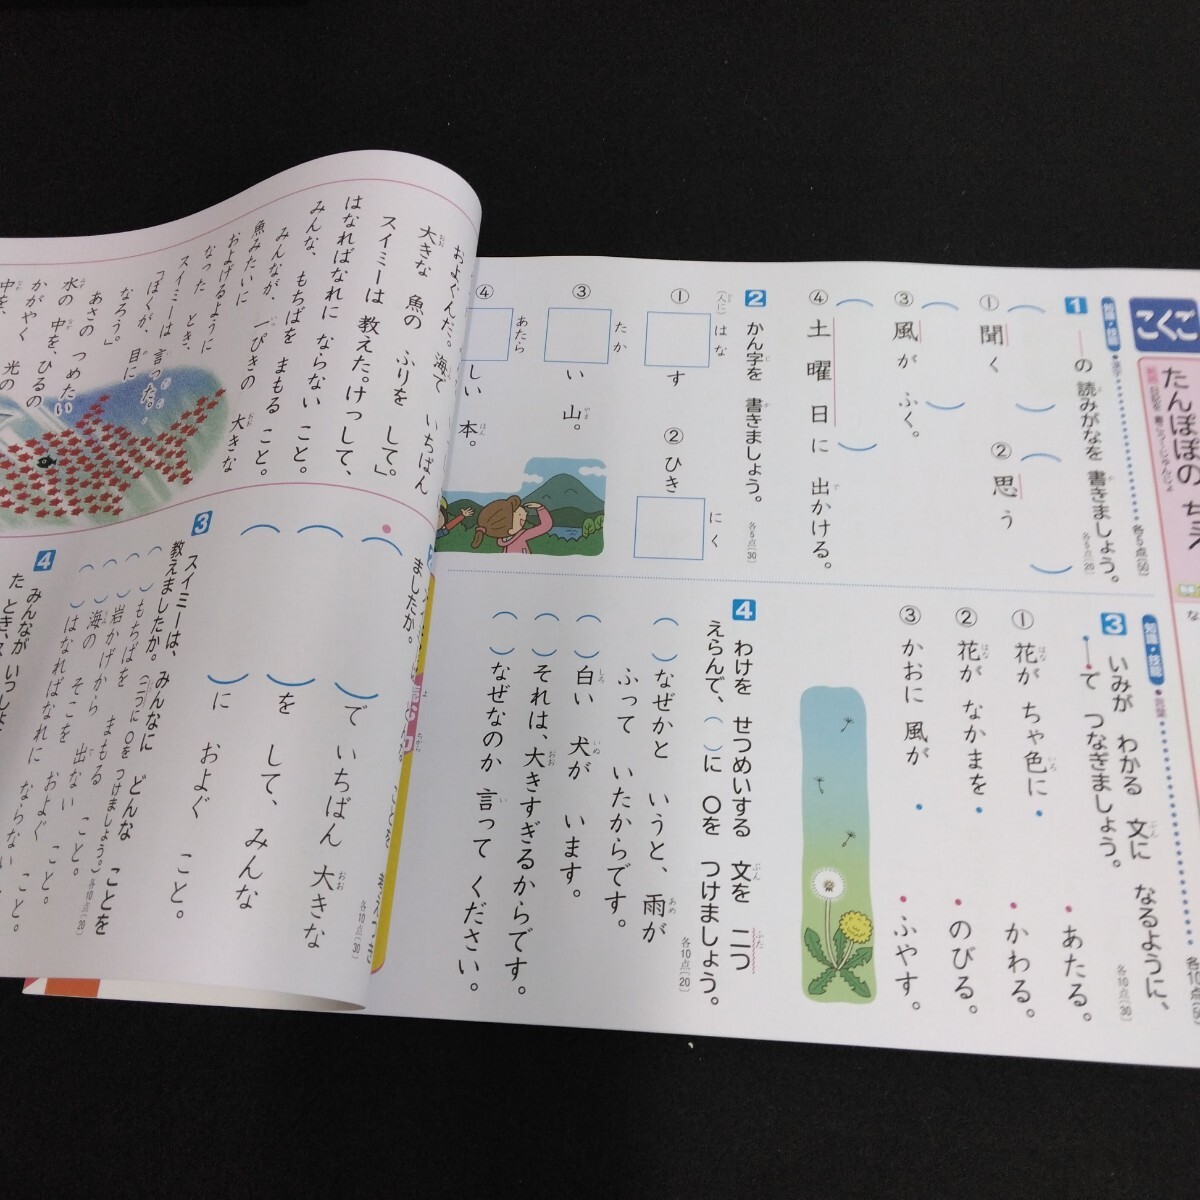 こくご
たんぽぽの ちえ
な
知識・技能
・漢字
各5点(50)
1 ――の 読みがなを 書きましょう。
各5点(20)
① 聞く
② 思う
③ 風が ふく。
④ 土曜日に 出かける。
2 かん字を 書きましょう。
各5点(30)
① (人に)はなす
② ひきにく
③ たかい 山。
④ あたらしい 本。
知識・技能
・言葉
各10点(50)
3 いみが わかる 文に なるように、
・―・で つなぎましょう。
各10点(30)
① 花が ちゃ色に・
② 花が なかまを・
③ かおに 風が・
・あたる。
・かわる。
・のびる。
・ふやす。
4 わけを せつめいする 文を 二つ
えらんで、( )に ○を つけましょう。
各10点(20)
( )なぜかと いうと、雨が
ふって いたからです。
( )白い 犬が います。
( )それは、大きすぎるからです。
( )なぜなのか 言って ください。
およぐんだ。海で いちばん
大きな 魚の ふりを して。」
スイミーは 教えた。けっして、
はなればなれに ならない こと。
みんな、もちばを まもる こと。
みんなが、一ぴきの 大きな
魚みたいに
およげるように
なった とき、
スイミーは 言った。
「ぼくが、目に
なろう。」
あさの つめたい
水の 中を、ひるの
かがやく 光の
中を、
ましたか。
各10点(30)
( )で いちばん 大きな
( )を して、みんな
( )に およぐ こと。
3 スイミーは、みんなに どんな ことを
教えましたか。(二つに ○を つけましょう。)
各10点(20)
( )もちばを まもる こと。
( )岩かげから 出ない こと。
( )海の そこを およぐ こと。
( )はなればなれに ならない こと。
4 みんなが いっしょ
た とき、ス